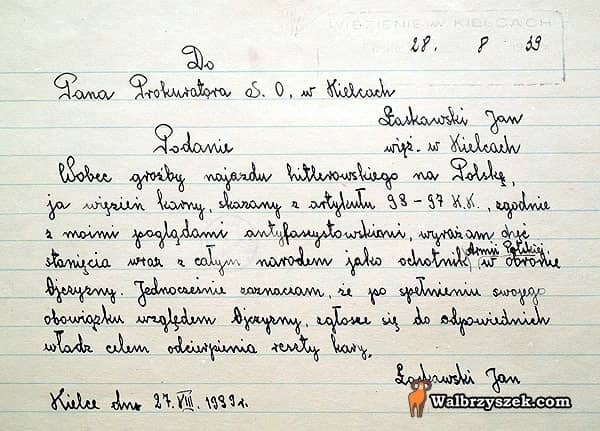 WIĘZIENIE W KIELCACH
28. 8 39
Do
Pana Prokuratora S. O. w Kielcach
Łaskawski Jan
więź. w Kielcach
Podanie
Wobec groźby najazdu hitlerowskiego na Polskę,
ja więzień karny, skazany z artykułu 98-97 K.K., zgodnie
z moimi poglądami antyfaszystowskimi, wyrażam chęć
stanięcia wraz z całym narodem jako ochotnik Armii Polskiej w obronie
Ojczyzny. Jednocześnie zaznaczam, że po spełnieniu swojego
obowiązku względem Ojczyzny, zgłoszę się do odpowiednich
władz celem odcierpienia reszty kary.
Łaskawski Jan
Kielce dn. 27.VIII.1939r.
Walbrzyszek.com